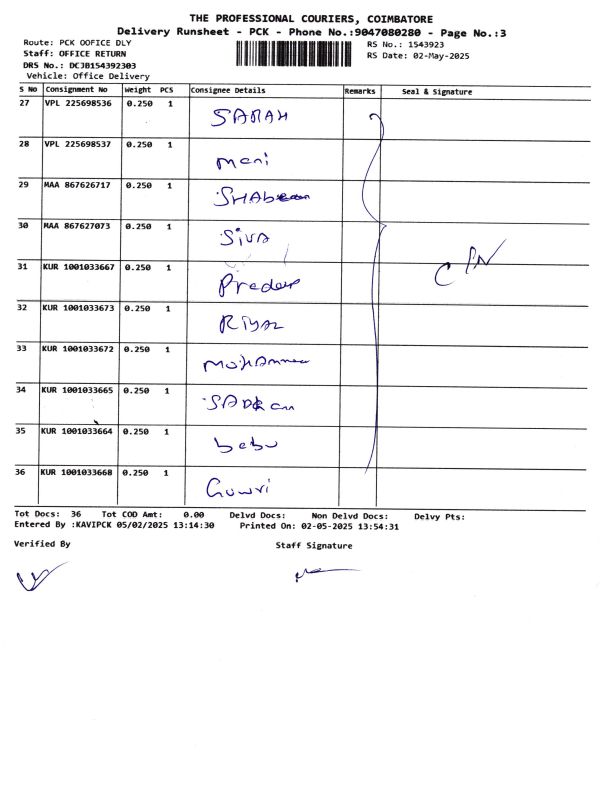 THE PROFESSIONAL COURIERS, COIMBATORE
Delivery Runsheet - PCK - Phone No.:9047080280 - Page No.:3
Route: PCK OOFICE DLY
RS No.: 1543923
Staff: OFFICE RETURN
RS Date: 02-May-2025
DRS No.: DCJB154392303
Vehicle: Office Delivery
S No Consignment No Weight PCS Consignee Details Remarks Seal & Signature
27 VPL 225698536 0.250 1 SARAH
28 VPL 225698537 0.250 1 Mani
29 MAA 867626717 0.250 1
30 MAA 867627073 0.250 1 SIVA
31 KUR 1001033667 0.250 1
32 KUR 1001033673 0.250 1 RIYAZ
33 KUR 1001033672 0.250 1
34 KUR 1001033665 0.250 1
35 KUR 1001033664 0.250 1 babu
36 KUR 1001033668 0.250 1 Gowri
Tot Docs: 36 Tot COD Amt: 0.00 Delvd Docs: Non Delvd Docs: Delvy Pts:
Entered By :KAVIPCK 05/02/2025 13:14:30 Printed On: 02-05-2025 13:54:31
Verified By Staff Signature